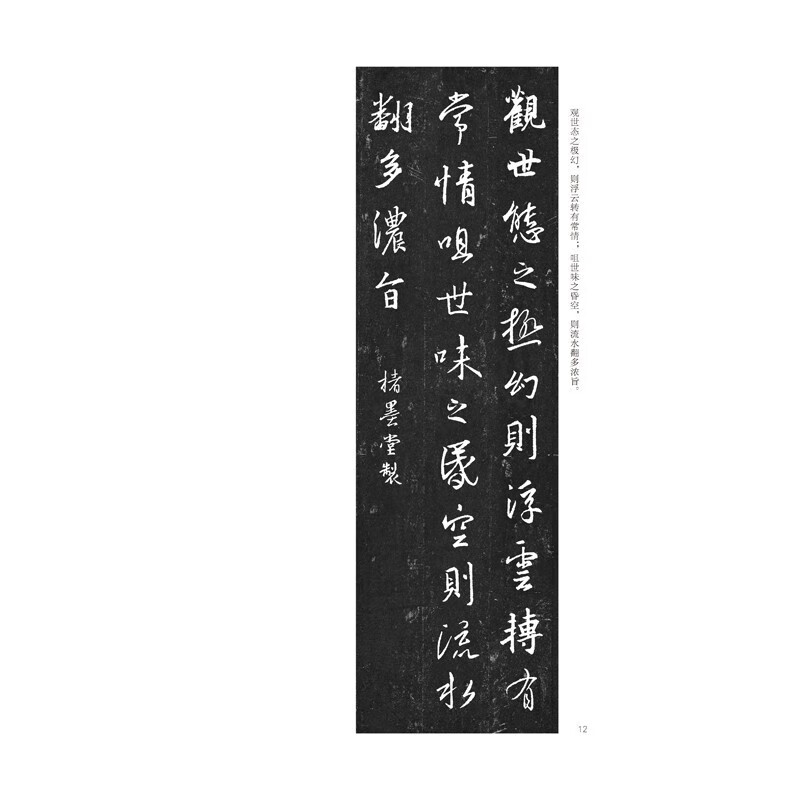 观世态之极幻，则浮云转有常情；咀世味之昏空，则流水翻多浓旨。
觀世態之極幻則浮雲轉有
常情咀世味之昬空則流水
翻多濃旨
楮墨堂製
12